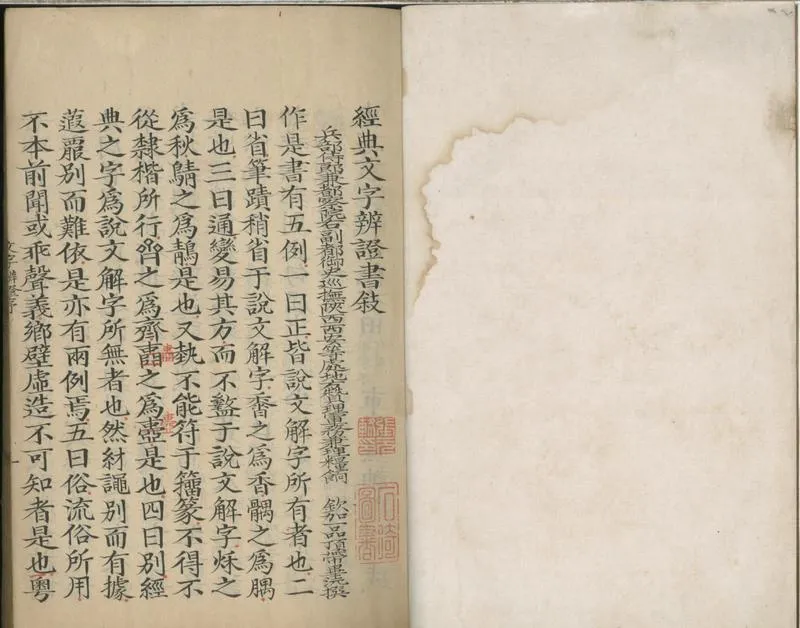 經典文字辨證書敍
兵部侍郎兼都察院右副都御史巡撫陝西西安等處地方贊理軍務兼理糧餉 欽加一品頂帶畢沅撰
作是書有五例一曰正皆說文解字所有者也二
曰省筆蹟稍省于說文解字𪏰之爲香髃之爲腢
是也三曰通變易其方而不盭于說文解字烁之
爲秋鶄之爲䴖是也又執不能符于籒篆不得不
從隸楷所行𠫼之爲齊壺之爲壺是也四曰別經
典之字爲說文解字所無者也然紂譝別而有據
蕸䍜別而難依是亦有兩例焉五曰俗流俗所用
不本前聞或乖聲義鄉壁虛造不可知者是也粤
文字辨證序
一